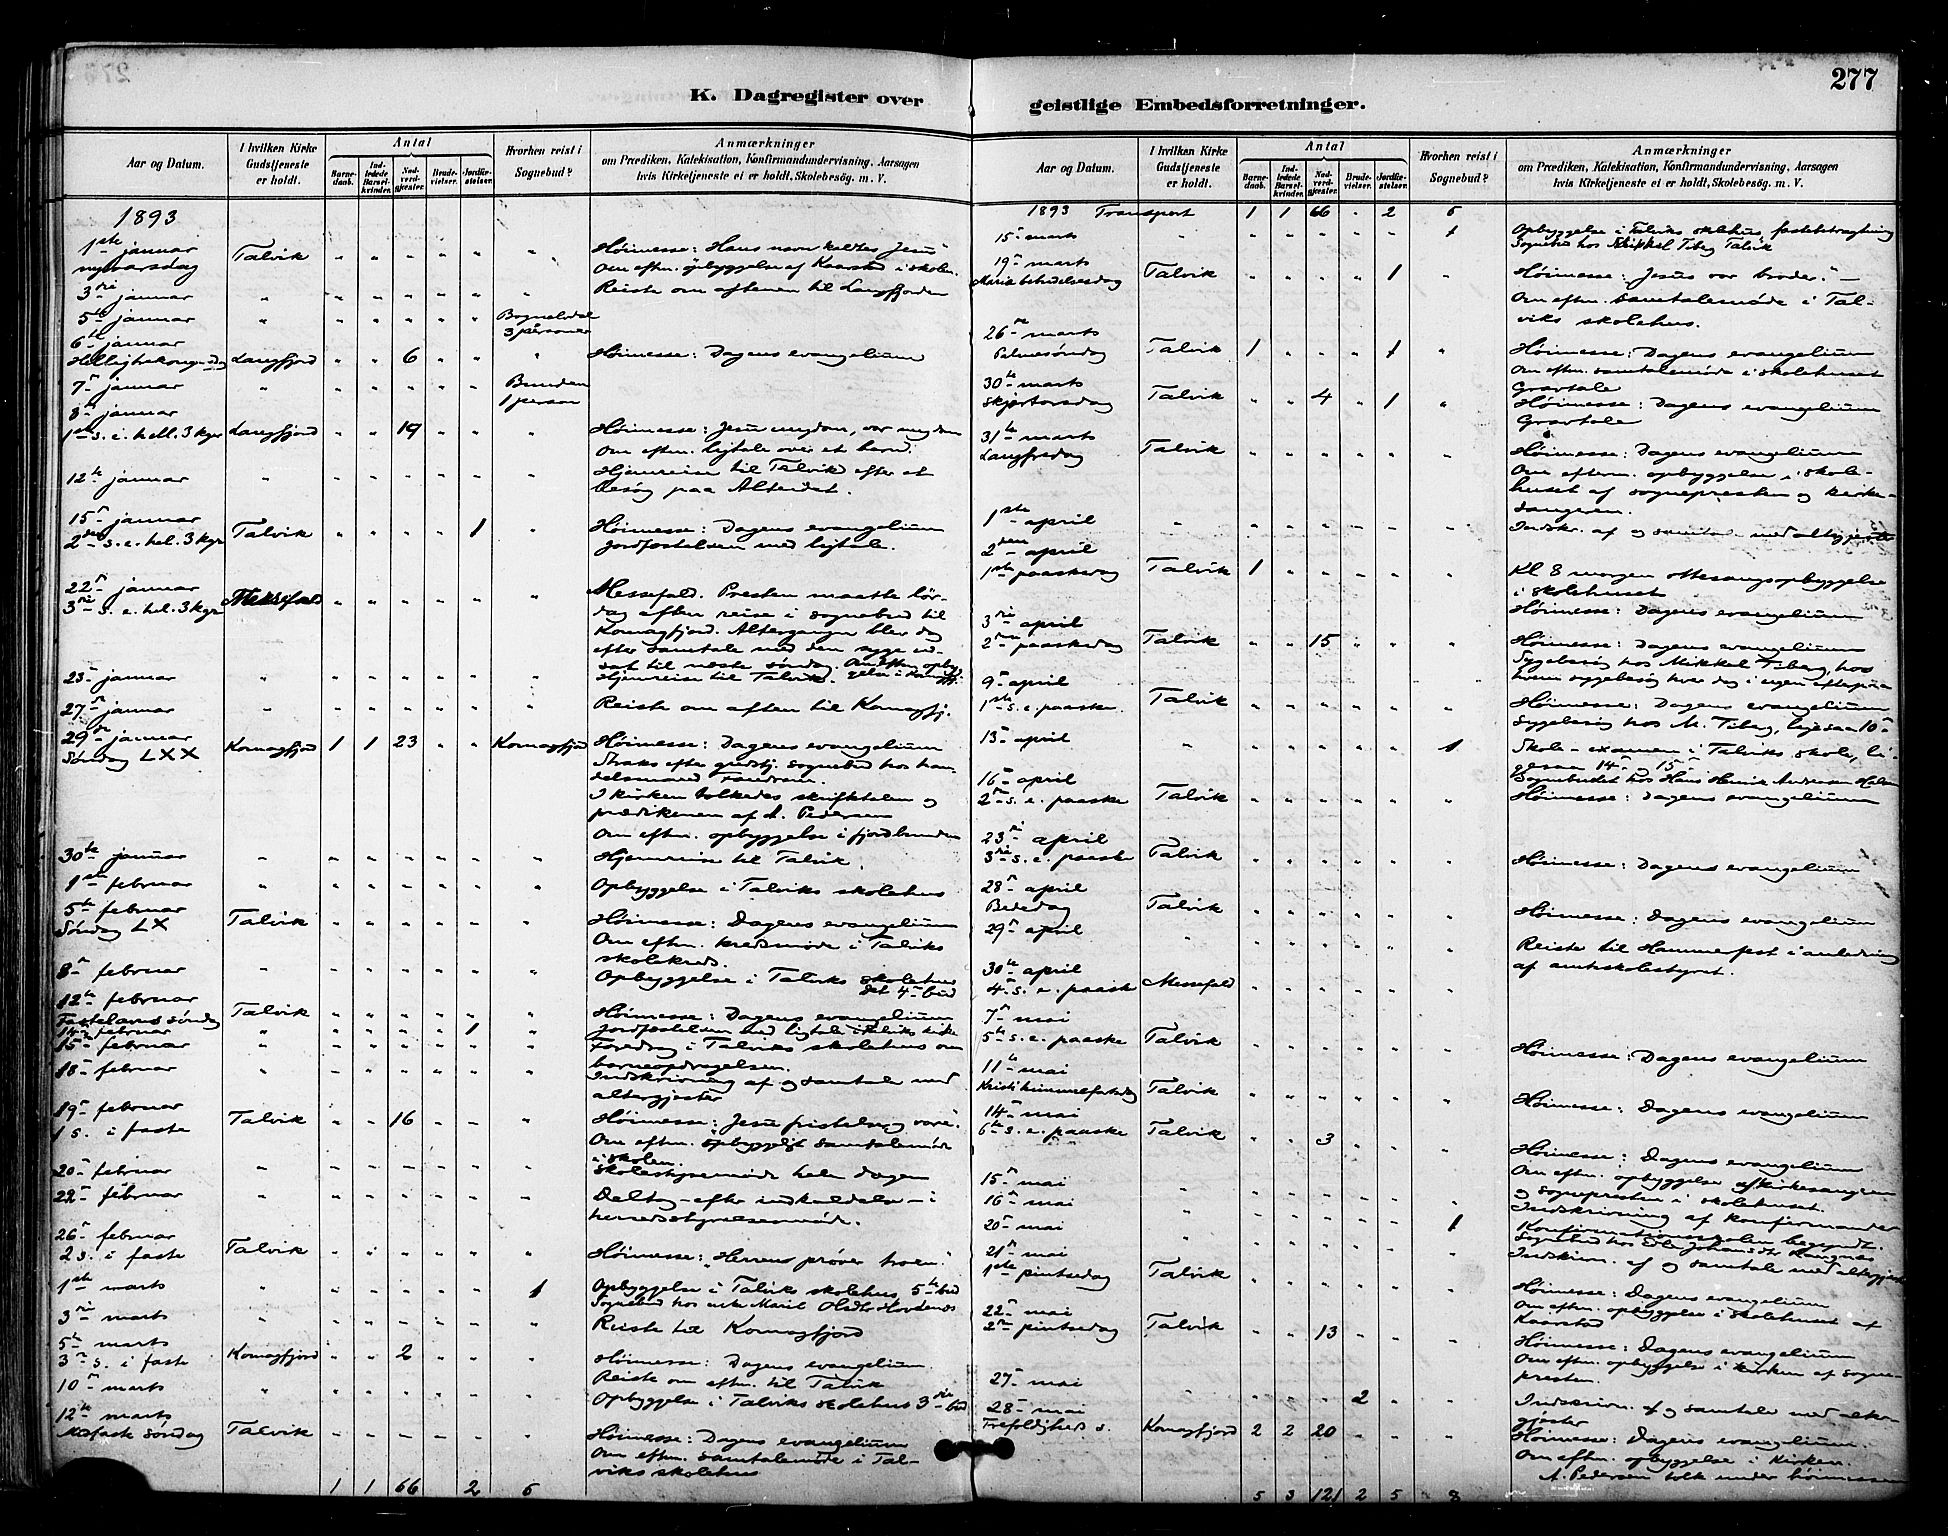 277
K. Dagregister over geistlige Embedsforretninger.
Aar og Datum.
I hvilken Kirke Gudstjeneste er holdt.
Antal
Barnedaab.
Indledede Barselkvinder.
Nadverdgjester.
Brudevielser.
Jordfæstelser.
Hvorhen reist i Sognebud?
Anmærkninger
om Prædiken, Katekisation, Konfirmandundervisning, Aarsagen
hvis Kirketjeneste ei er holdt, Skolebesøg. m. V.
1893
1ste januar nytaarsdag Talvik " " " " " " Høimesse: Hans navn kaldtes Jesu
Om eftm. opbyggelse af Kaarstad i skolen.
3die januar " " " " " " " Reiste om aftenen til Langfjorden
5te januar " " " " " " Bognelvdal 3 personer
6te januar Helligtrekongersdag Langfjord " " 6 " " " Høimesse: Dagens evangelium
7n januar " Bunden 1 person
8n januar
1ste s. e. hell. 3 kgr Langfjord " " 19 " " " Høimesse: Jesu ungdom, vor ungdom
Om eftm. ligtale over et barn.
12te januar " " " " " " " Hjemreise til Talvik efter et
besøg paa Alteidet.
15n januar
2den s. e. hel. 3 kgr Talvik " " " " 1 " Høimesse: Dagens evangelium
Jordfæstelsen med ligtale.
22n januar
3die s. e. hel. 3 kgr Messefald " " " " " " Messefald. Presten maatte lør-
dag aften reise i sognebud til
Komagfjord. Altergangen blev dog
efter samtale med den syge ud-
sat til næste søndag. Om eftm. opbyg-
23n januar " " " " " " " Hjemreise til Talvik. gelse i Komagfj.
27n januar " " " " " " " Reiste om aften til Komagfj.
29n januar
Søndag LXX Komagfjord 1 1 23 " " Komagfjord Høimesse: Dagens evangelium
Straks efter gudstj. sognebud hos han-
delsmand
I kirken tolkedes skriftetalen og
prædikenen af A. Pedersen
Om eftm. opbyggelse i fjordbunden
30te januar " " " " " " " Hjemreise til Talvik.
1ste februar " " " " " " " Opbyggelse i Talviks skolehus
5te februar
Søndag LX Talvik " " " " " " Høimesse: Dagens evangelium
Om eftm. kredsmøde i Talviks
skolekreds.
8n februar " " " " " " " Opbyggelse i Talviks skolehus
det 4n bud
12te februar
Fastelavns søndag Talvik " " " " " " Høimesse: Dagens evangelium
14n februar " " " " " 1 " Jordfæstelsen med ligtale i Talviks kirke
15n februar " " " " " " " Foredrag i Talviks skolehus om
barneopdragelsen.
18n februar " " " " " " " Indskrivning af og samtale med
altergjester
19n februar
1 s. i faste Talvik " " 16 " " " Høimesse: Jesu fristelse og vore.
Om eftm. opbyggeligt samtalemøde
i skolen.
20n februar " " " " " " " Skolestyremøde hele dagen
22n februar " " " " " " " Deltog – efter indkaldelse – i
herredsstyrelsesmøde.
26n februar
2 s. i faste Talvik " " " " " " Høimesse: Herrens prøver troen.
1ste marts " " " " " " 1 Opbyggelse i Talviks skolehus 5te bud
Sognebud hos enke Marit
3die marts " " " " " " " Reiste til Komagfjord
5te marts
3die s. i faste Komagfjord " " 2 " " " Høimesse: Dagens evangelium.
Reiste om eftm. til Talvik
10n marts " " " " " " " Opbyggelse i Talviks skolehus 3die bud
12te marts
Midfaste søndag Talvik " " " " " " Høimesse: Dagens evangelium
Om eftm. samtalemøde i Tal-
viks skolehus
1 1 66 2 5
Aar og Datum.
I hvilken Kirke Gudstjeneste er holdt.
Antal
Barnedaab.
Indledede Barselkvinder.
Nadverdgjester.
Brudevielser.
Jordfæstelser.
Hvorhen reist i Sognebud?
Anmærkninger
om Prædiken, Katekisation, Konfirmandundervisning, Aarsagen
hvis Kirketjeneste ei er holdt, Skolebesøg. m. V.
1893 Transport 1 1 66 " 2 5
15n marts " " " " " " 1 Opbyggelse i Talviks skolehus, fastebetragtning
Sognebud hos Mikkel Tiberg Talvik
19n marts
Mariæ bebudelsesdag Talvik " " " " 1 " Høimesse: "Jesus vor broder." –
Om eftm. samtalemøde i Tal-
viks skolehus.
26n marts
Palmesøndag Talvik 1 " " " 1 " Høimesse: Dagens evangelium
Om eftm. samtalemøde i skolehuset
Gravtale
30te marts
Skjærtorsdag Talvik " " 4 " 1 " Høimesse: Dagens evangelium
Gravtale
31te marts
Langfredag Talvik " " " " " " Høimesse: Dagens evangelium
Om eftm. opbyggelse i skole-
huset af sognepresten og kirke-
sangeren.
1ste april " " " " " " " Indskr. af og samtale med altergjester
2den april
1ste paaskedag Talvik 1 " " " " " Kl 8 morgen ottesangsopbyggelse
i skolehuset
Høimesse: Dagens evangelium
3die april
2den paaskedag Talvik " " 15 " " " Høimesse: Dagens evangelium
Sygebesøg hos Mikkel Tiberg, hos
ham sygebesøg hver dag i ugen efterpaa
9n april
1ste s. e. paaske. Talvik " " " " " " Høimesse: Dagens evangelium
Sygebesøg hos M. Tiberg, ligesaa 10n
13n april " " " " " " 1 Skole-examen i Talviks skole, li-
gesaa 14n og 15n
Sognebudet hos Hans Henrik Andersen
16n april
2n s. e. paaske Talvik " " " " " " Høimesse: Dagens evangelium
23die april
3die s. e. paaske Talvik " " " " " " Høimesse: Dagens evangelium
28n april
Bededag Talvik " " " " " " Høimesse: Dagens evangelium
29n april " " " " " " " Reiste til Hammerfest i anledning
af amtsskolestyret.
30te april
4. s. e. paaske Messefald " " " " " "
7n mai
5te s. e. paaske Talvik " " " " " " Høimesse: Dagens evangelium
11te mai
Kristi himmelfartsdag Talvik " " " " " " Høimesse: Dagens evangelium
14n mai
6te s. e. paaske Talvik " " 3 " " " Høimesse: Dagens evangelium
Om eftm. opbyggelse af kirkesangeren
og sognepresten i skolehuset.
15n mai " " " " " " " Indskrivning af konfirmander
16n mai " " " " " " " Konfirmationsskolen begyndt.
20n mai " " " " " " 1 Sognebud hos
Indskrivn. af og samtale med altergjester
21n mai
1ste pintsedag Talvik " " " " " " Høimesse: Dagens evangelium
Om eftm. opbyggelse i skolehuset af
Kaarstad
22n mai
2n pintsedag Talvik " " 13 " " " Høimesse: Dagens evangelium
Om eftm. opbyggelse i kirken af sogne-
presten.
27n mai " " " " 2 " " Indskrivn. af og samtale med alter-
gjester
28n mai
Trefoldigheds s. Komagfjord 2 2 20 " " " Høimesse: Dagens evangelium.
Om eftm. opbyggelse i Kirken.
A. Pedersen tolk under høimessen
5 3 121 2 5 8